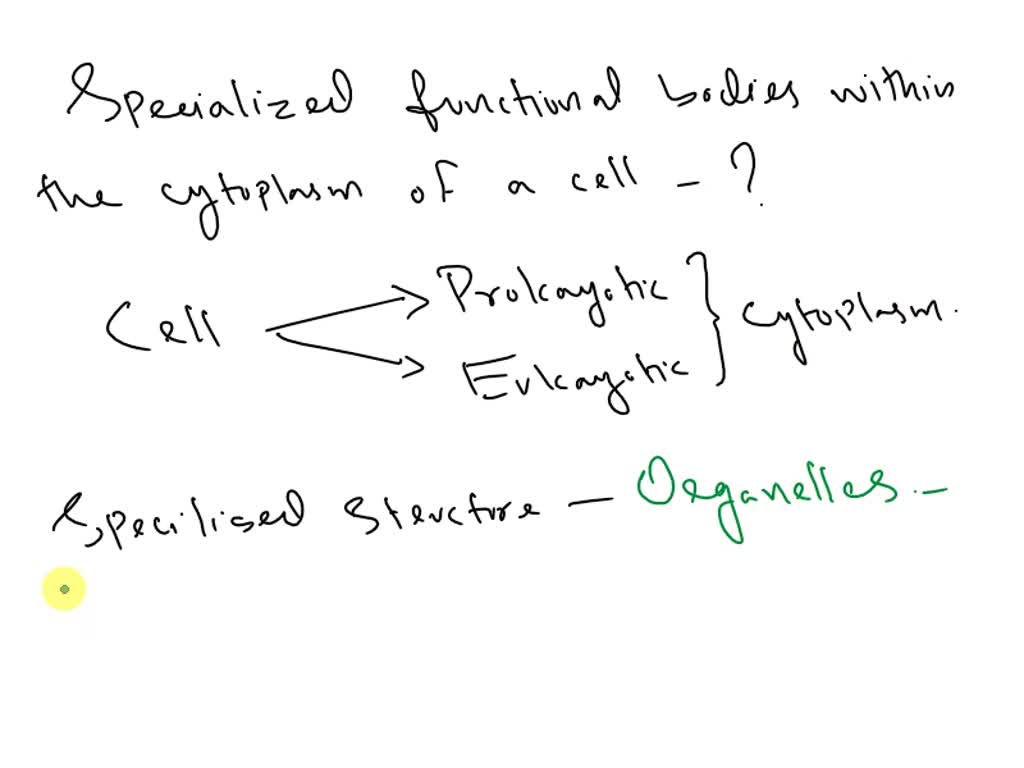 Specialized functional bodies within
the cytoplasm of a cell - ?
Cell → Prokayotic } cytoplasm.
→ Eukayotic
Specilised structure - Organelles. -